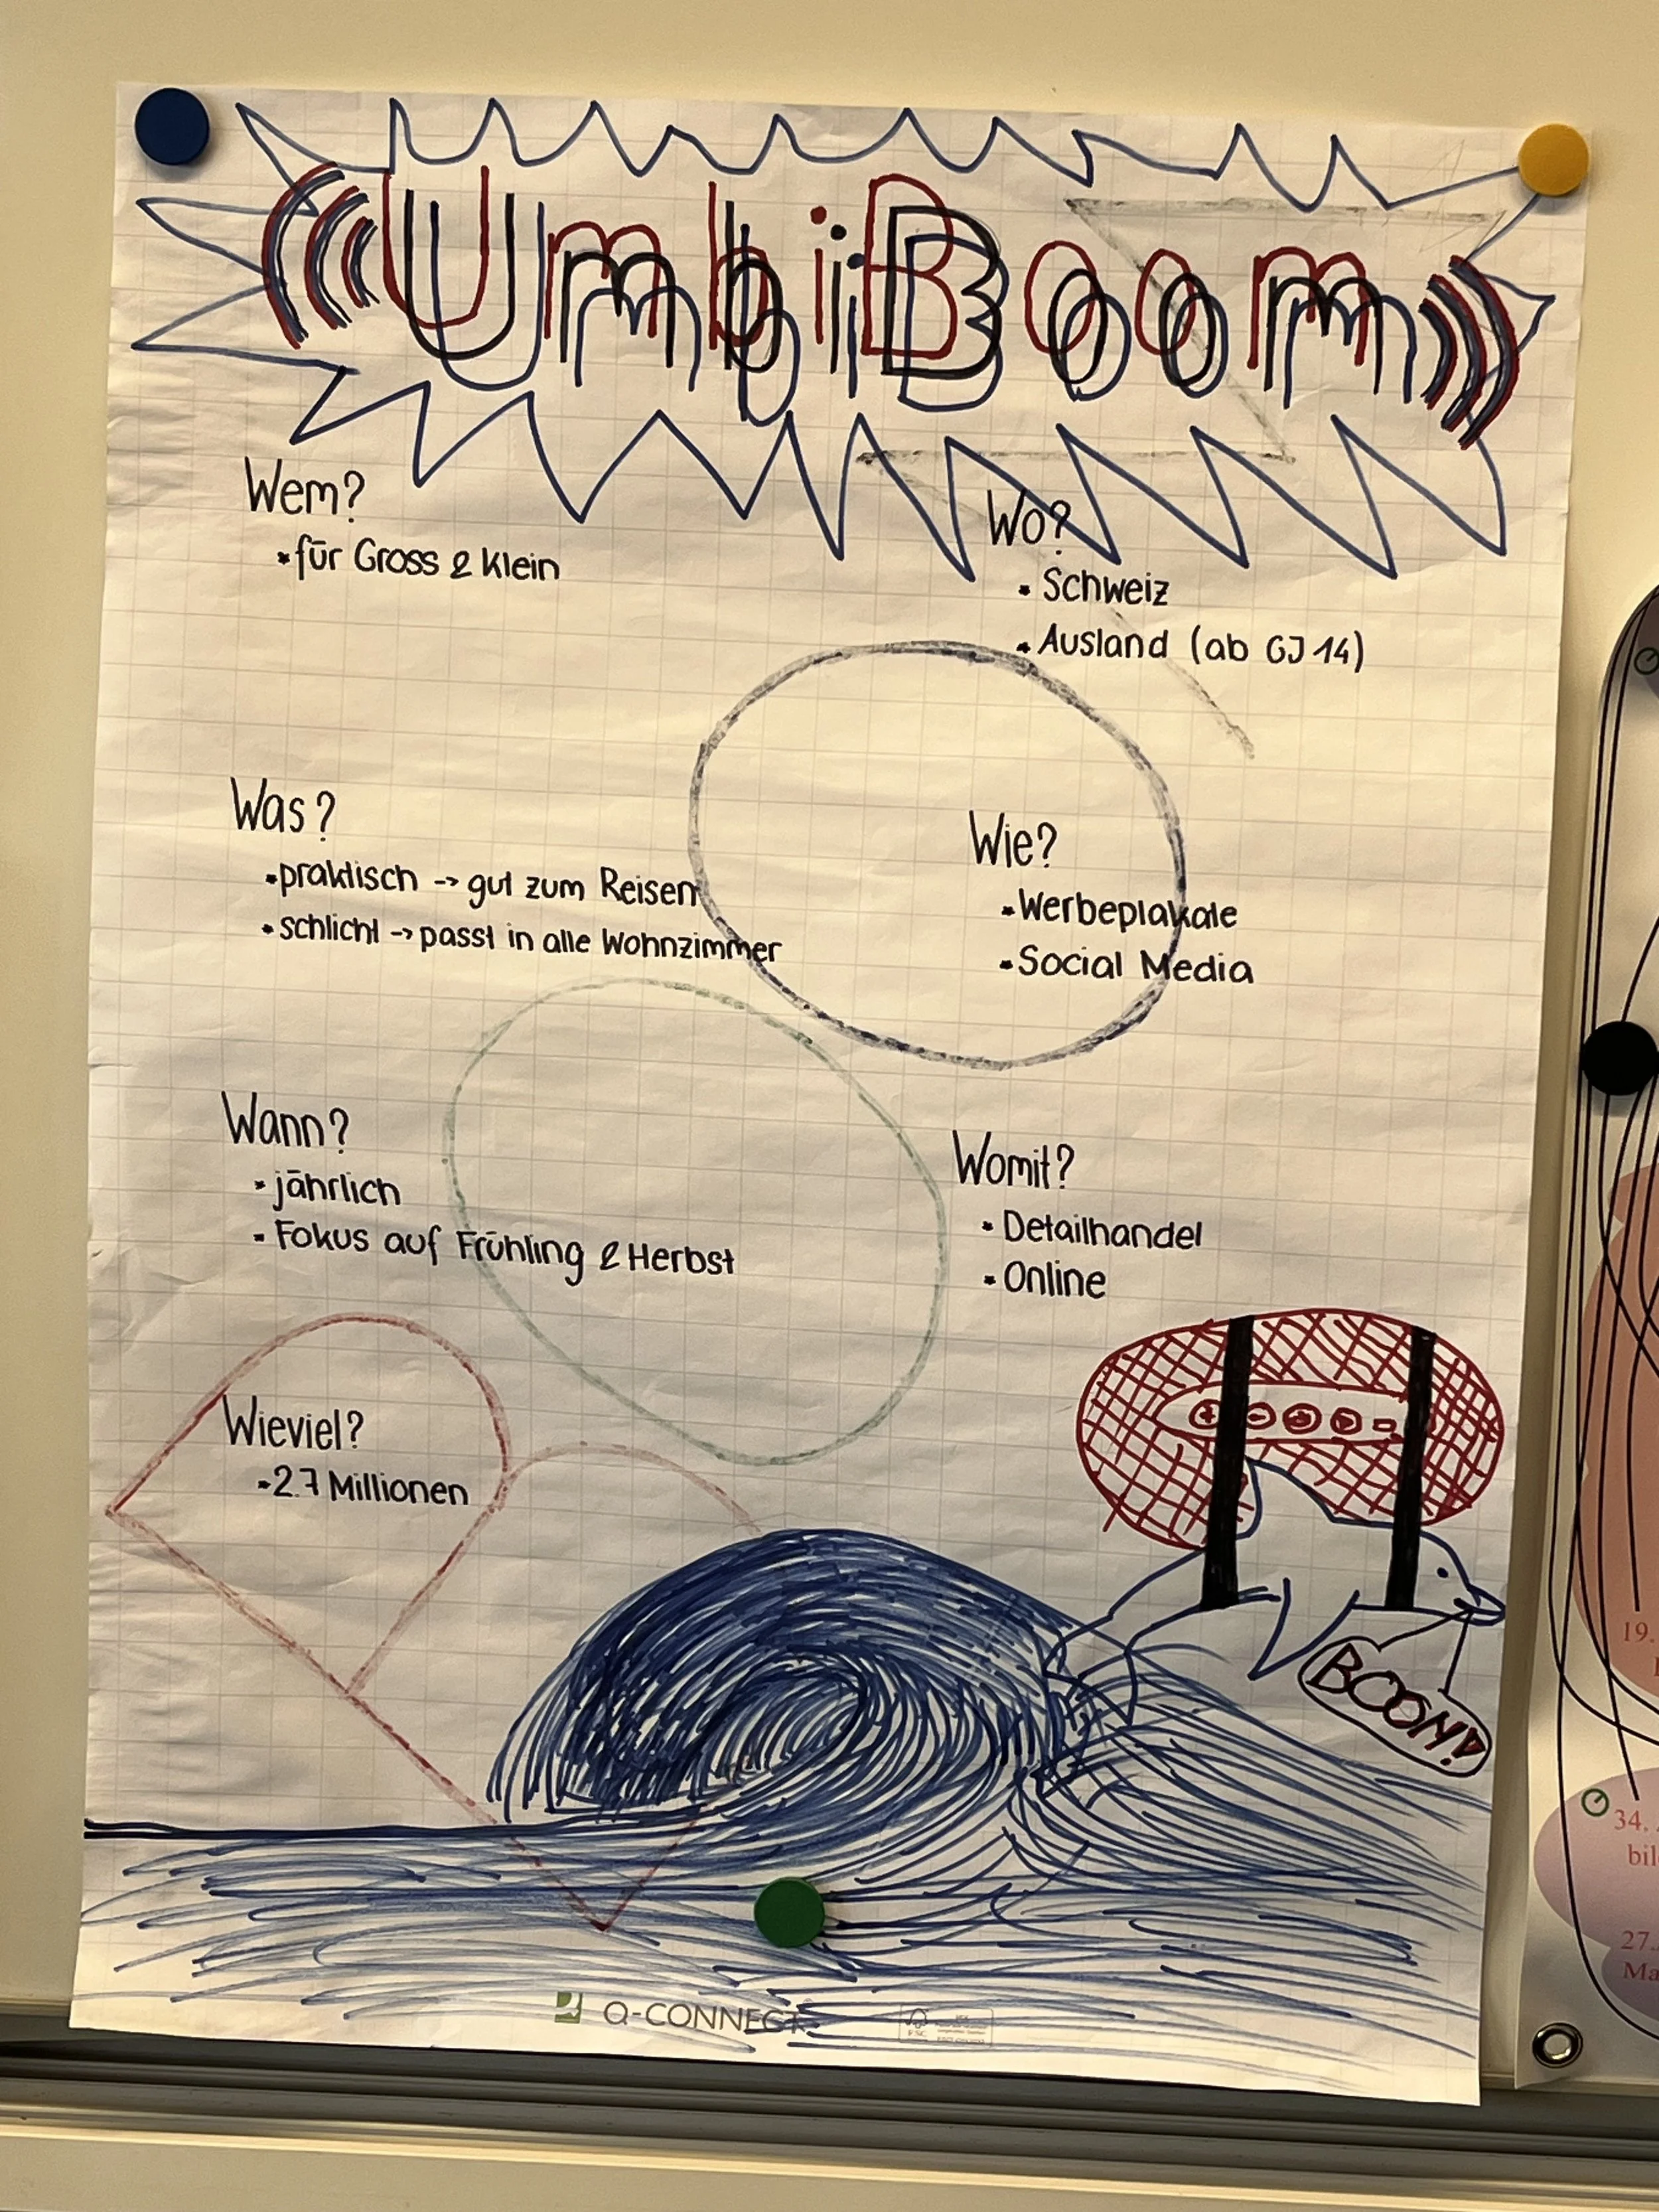 UmbiBoom
Wem?
• für Gross & Klein
Wo?
• Schweiz
• Ausland (ab GJ 14)
Was?
• praktisch -> gut zum Reisen
• schlicht -> passt in alle Wohnzimmer
Wie?
• Werbeplakate
• Social Media
Wann?
• jährlich
• Fokus auf Frühling & Herbst
Womit?
• Detailhandel
• Online
Wieviel?
• 2.7 Millionen
BOOM!
Q-CONNECT
FSC
19.
34.
bil
27.
Ma